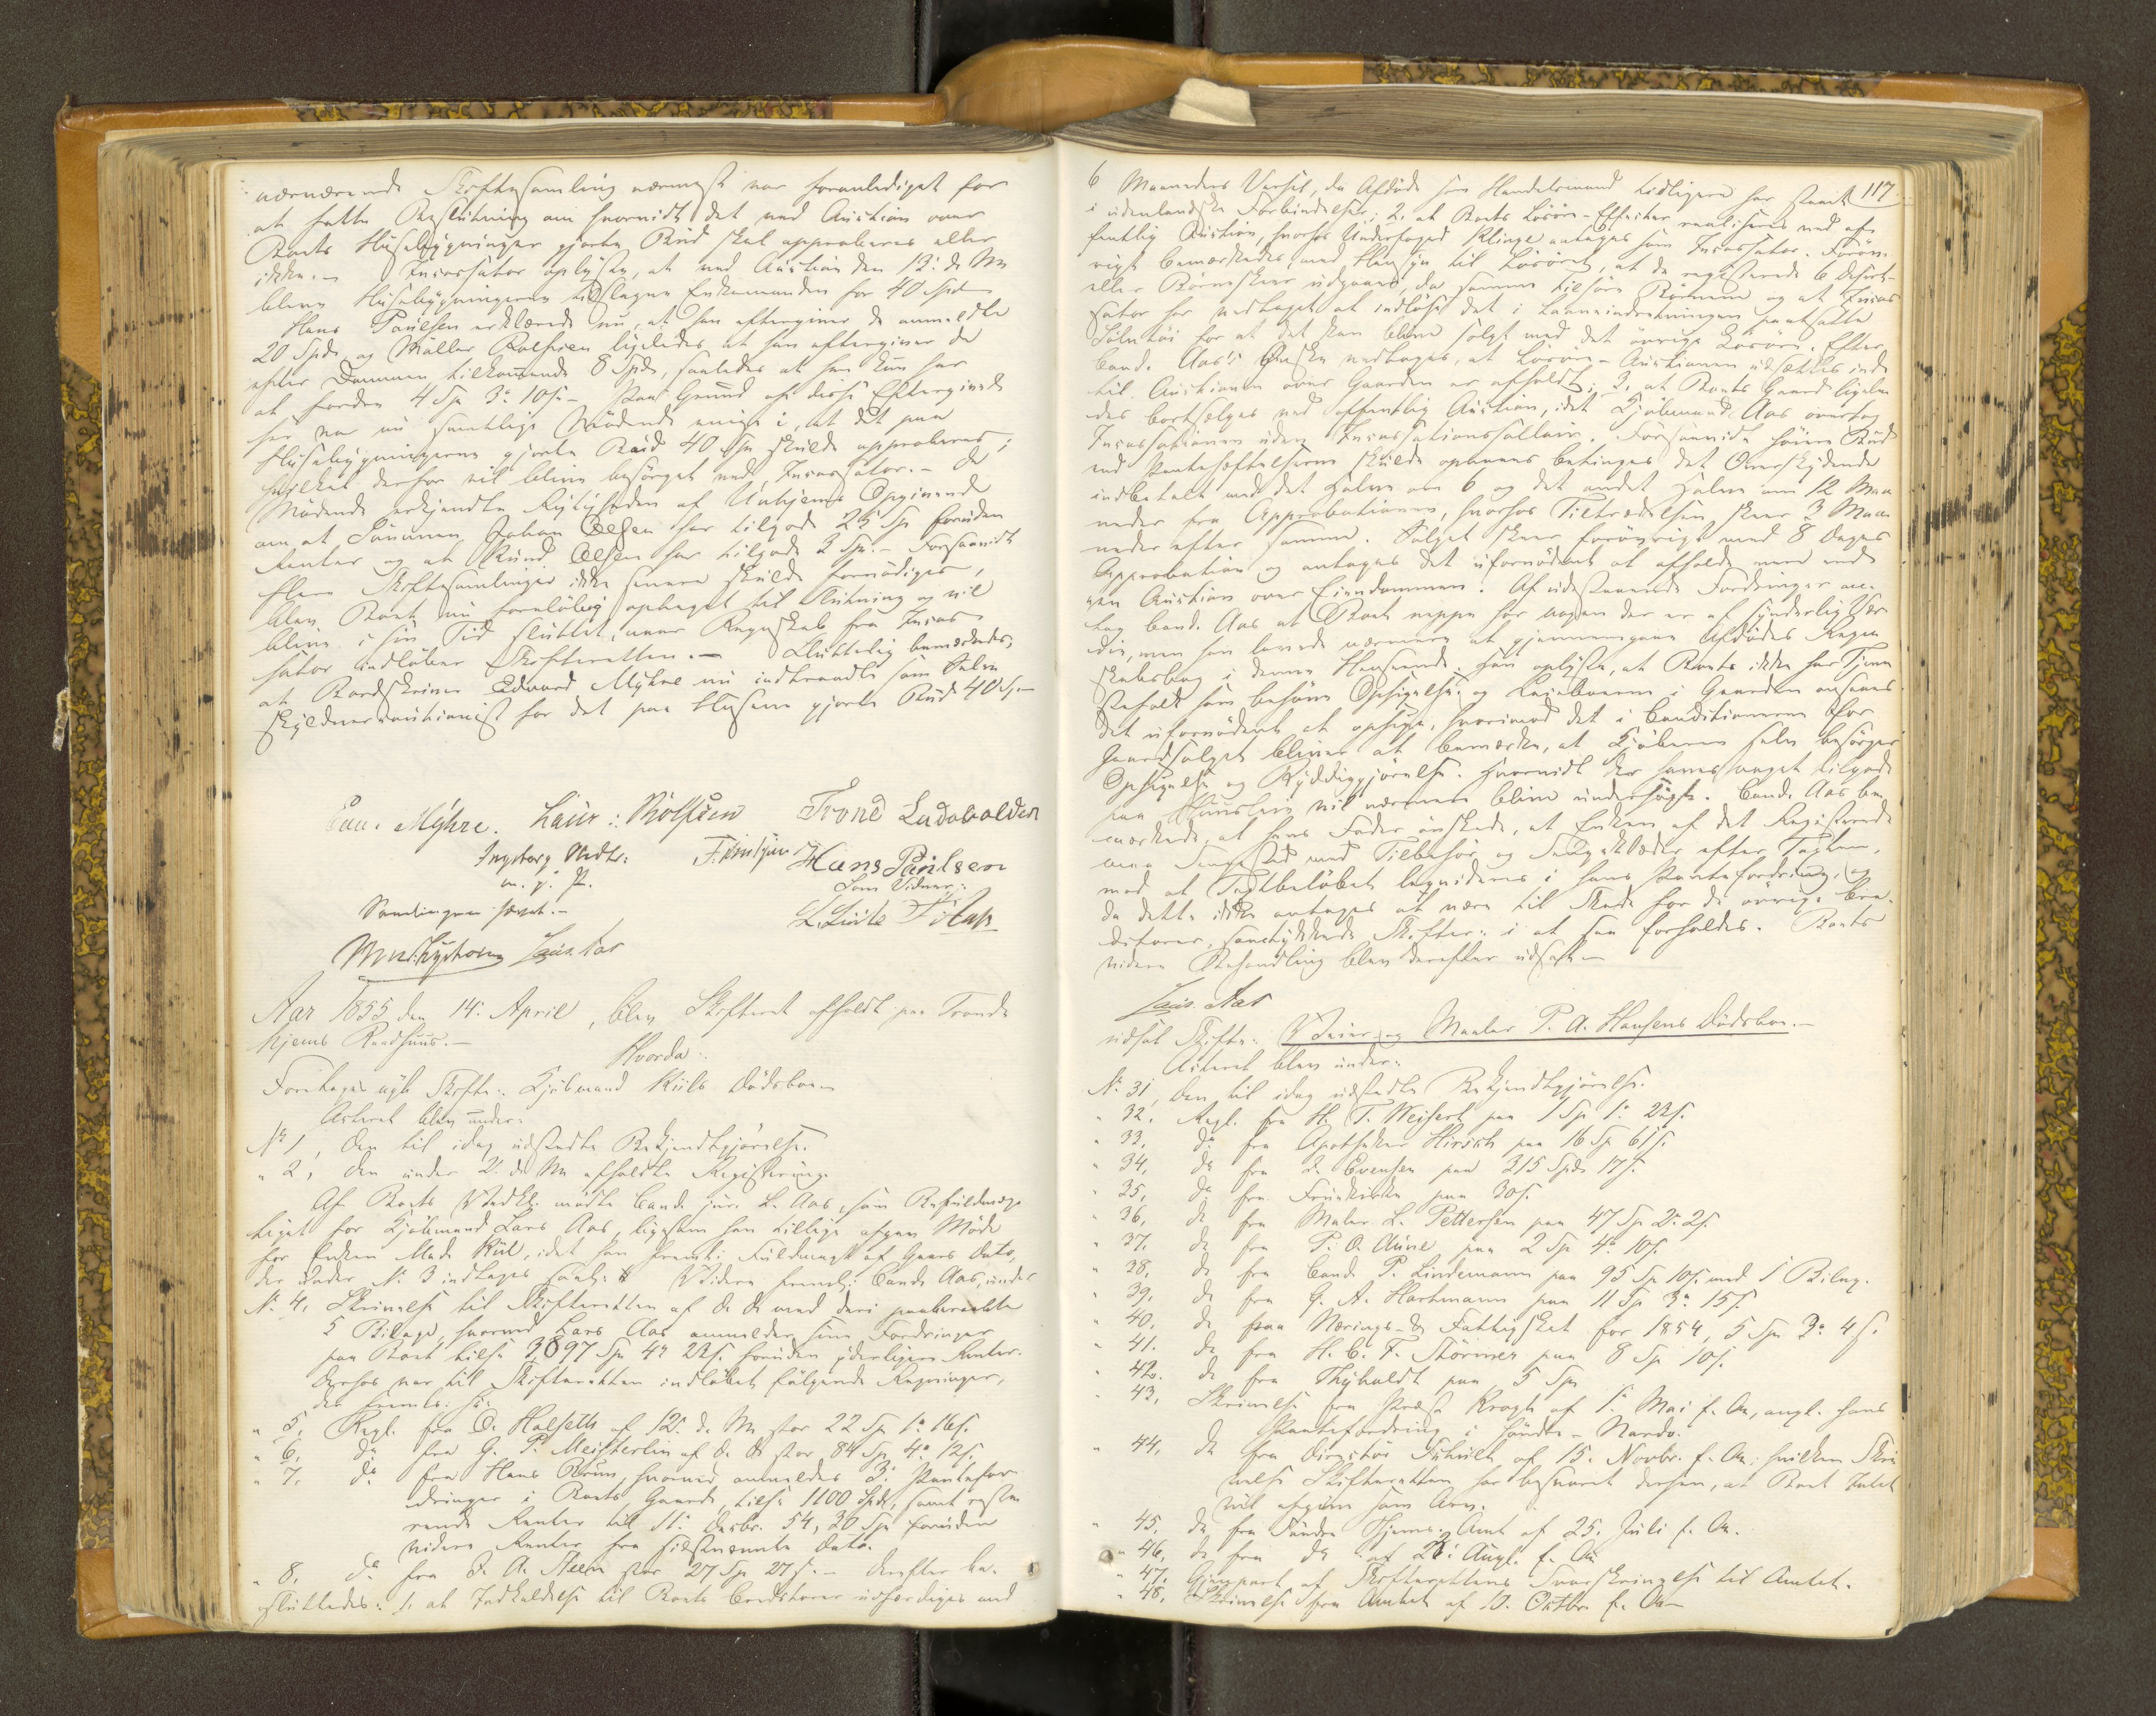 nærværende Skiftesamling nærmest var foranlediget for
at fatte Beslutning om hvorvidt det ved Auction over
Boets Huusebygninger gjorte Bud skal approberes eller
ikke. – Incassator oplyste, at ved Auction den 13: d. Mts
bleve Huusebygningerne tilslagne Enkemanden for 40 Spd
Hans Paulsen erklærede nu, at han eftergiver de anmeldte
20 Spd, og Møller Rolfsen ligeledes at han eftergiver de
efter Dommen tilkommende 8 Spd, saaledes at han kun har
at fordre 4 Sp 3 10 s. – Paa Grund af disse Eftergivende
her var nu samtlige Mødende enige i, at det paa
Huusebygningerne gjorte Bud 40 Sp skulde approberes;
hvilket derfor vil blive besørget ved Incassator. – De
Mødende erkjendte Rigtigheden af Opgivende
om at Sønnen Johan Olsen har tilgode 25 Sp foruden
Renter og at Knud Olsen har tilgode 2 Sp. – Forsaavidt
flere Skiftesamlinger ikke senere skulde fornødiges,
blev Boet nu foreløbig optaget til Slutning og vil
blive i sin Tid sluttet, naar Regnskab fra Incas-
sator indløber Skifteretten. – Sluttelig bemærkedes,
at Bordskriver Edvard Myhre nu indtraadte som Selv-
skyldnercautionist for det paa Husene gjorte Bud 40 S. –
Edu. Myhre. Laur: Rolfsen Trond Ladebalden
Ingeborg Hans Paulsen
m. p. P. Som Vidner:
Samlingen hævet. –
Laur. Aas
Aar 1855 den 14: April, blev Skifteret afholdt paa Trond-
hjems Raadhuus. –
Hvorda:
Foretages nyt Skifte: Kjøbmand Kiils Dødsboe –
Acteret blev under:
No 1, den til idag udstedte Bekjendtgjørelse.
" 2, den under 2. ds M afholdte Registrering.
Af Boets Vedk. mødte Cand. jur. L. Aas, som Befuldmæg-
tiget for Kjøbmand Lars Aas, ligesom han tillige afgav Møde
for Enken Mad. Kiil, idet han freml: Fuldmagt af Gaars Dato,
der under No 3 indtages saal: Videre freml: Cand. Aas under
No 4, Skrivelse til Skifteretten af d. D. med deri paaberaabte
5 Bilage, hvorved Lars Aas anmelder sine Fordringer
paa Boet tils. 3897 Sp 4 22 s. foruden yderligere Renter.
Derhos var til Skifteretten indløbet følgende Regninger,
der fremls: s:
" 5, Regl. fra O. Halseth af 12. d. M. stor 22 Sp 1 16 s.
" 6, do fra G. P. Meisterlin af d. D. stor 84 Sp 4 12 s.
" 7, do fra Hans Bruun, hvorved anmeldes 3: Pantefor-
dringer i Boets Gaard, tils. 1100 Spd, samt resteren-
rende Renter til 11: Decbr. 54, 30 Sp foruden
videre Renter fra sidstnævnte Dato.
" 8, do fra J. A. Steen stor 27 Sp 27 s. – Derefter be-
sluttedes: 1, at Indkaldelse til Boets Creditorer udfærdiges med
117
6 Maaneders Varsel, da Afdøde som Handelsmand tidligere har staaet
i udenlandske Forbindelser; 2, at Boets Løsøre-Effecter realiseres ved of-
fentlig Auction, hvorhos Underfoged Klinge antages som Incassator. Forøv-
rigt bemærkedes, med Hensyn til Løsøret, at de registrerede 6 Dessert-
eller Børneskeer udgaaer, da samme tilhøre Børnene og at Incas-
sator har vedtaget at indløse det i Laaneindretningen pantsatte
Sølvtøi for at det kan blive solgt med det øvrige Løsøre. Efter
Cand. Aas's Ønske vedtages, at Løsøre-Auctionen udsættes indtil
til Auctionen over Gaarden er afholdt; 3, at Boets Gaard ligele-
des bortsælges ved offentlig Auction, idet Kjøbmand Aas overtog
Incassationen uden Incassationssallair. Forsaavidt høiere Bud
end Pantehæftelserne skulde opnaaes betinges det Overskydende
indbetalt med det Halve om 6 og det andet Halve om 12 Maa-
neder fra Approbationen, hvorhos Tiltrædelsen skeer 3 Maa-
neder efter samme. Salget skeer forøvrigt med 8 Dages
Approbation og antages det ufornødent at afholde mere end
een Auction over Eiendommen. Af udestaaende Fordringer an-
tog Cand. Aas at Boet neppe har nogen der er af synderlig Vær-
die, men han lovede nærmere at gjennemgaae Afdødes Regn-
skabsbog i denne Henseende. Han oplyste, at Boet ikke har Tjene-
stefolk som behøve Opsigelse og Leieboerne i Gaarden ansaaes
det ufornødent at opsige, hvorimod det i Conditionerne for
Gaardsalget bliver at bemærke, at Kjøberen selv besørger
Opsigelse og Ryddiggjørelse. Hvorvidt der haves noget tilgode
paa Huusleie vil nærmere blive undersøgt. Cand. Aas be-
mærkede, at hans Fader ønskede, at Enken af det Registrerede
maa Sengested med Tilbehør og Sengeklæder efter Taxten,
mod at Taxtbeløbet liquideres i hans Pantefordring, og
da dette ikke antages at være til Skade for de øvrige Cre-
ditorer, samtykkede Skifter: i at saa forholdes. Boets
videre Behandling blev derefter udsat. –
Laur. Aas
udsat Skifte: og Maaler P. A. Hansens Dødsboe. –
Acteret blev under:
No 31, den til idag udstedte Bekjendtgjørelse.
" 32, Regl. fra H. T. Weisert paa 1 Sp 1 22 s.
" 33, do fra Apotheker Hirsch paa 16 Sp 61 s.
" 34, do fra D. Evensen paa 315 Spd 17 s.
" 35, do fra Fruekirke paa 30 s.
" 36, do fra Maler L. Pettersen paa 47 Sp 2 2 s.
" 37, do fra P. O. Aune paa 2 Sp 4 10 s.
" 38, do fra Cand. P. Lindemann paa 95 Sp 10 s. med 1 Bilag.
" 39, do fra G. A. Hartmann paa 11 Sp 3 15 s.
" 40, do paa Nærings- & Fattigskat for 1854, 5 Sp 3 4 s.
" 41. do fra H. C. F. Störmer paa 8 Sp 10 s.
" 42. do fra Thybaldt paa 5 Sp
" 43, Skrivelse fra Præst Krogh af 1. Mai f. A., angl. hans
Pantefordring i Nardo.
" 44, do fra Directør Schult af 15. Novbr. f. A., hvilken Skri-
velse Skifteretten har besvaret derhen, at Boet Intet
vil afgive som Arv.
" 45, do fra Søndre Thjems Amt af 25. Juli f. A.
" 46, do fra do af 23: Augl. f. A.
" 47, Gjenpart af Skifterettens Svarskrivelse til Amtet.
" 48, Skrivelse fra Amtet af 10. Octbr. f. A. –